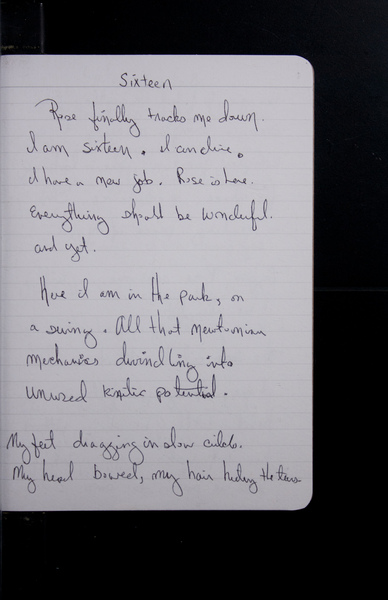 Sixteen
Rose finally tracks me down.
I am sixteen. I can drive.
I have a new job. Rose is here.
Everything should be wonderful.
and yet.
Here I am in the park, on
a swing. All that Newtonian
mechanics dwindling into
unused kinetic potential.
My feet dragging in slow circles.
My head bowed, my hair hiding the tears